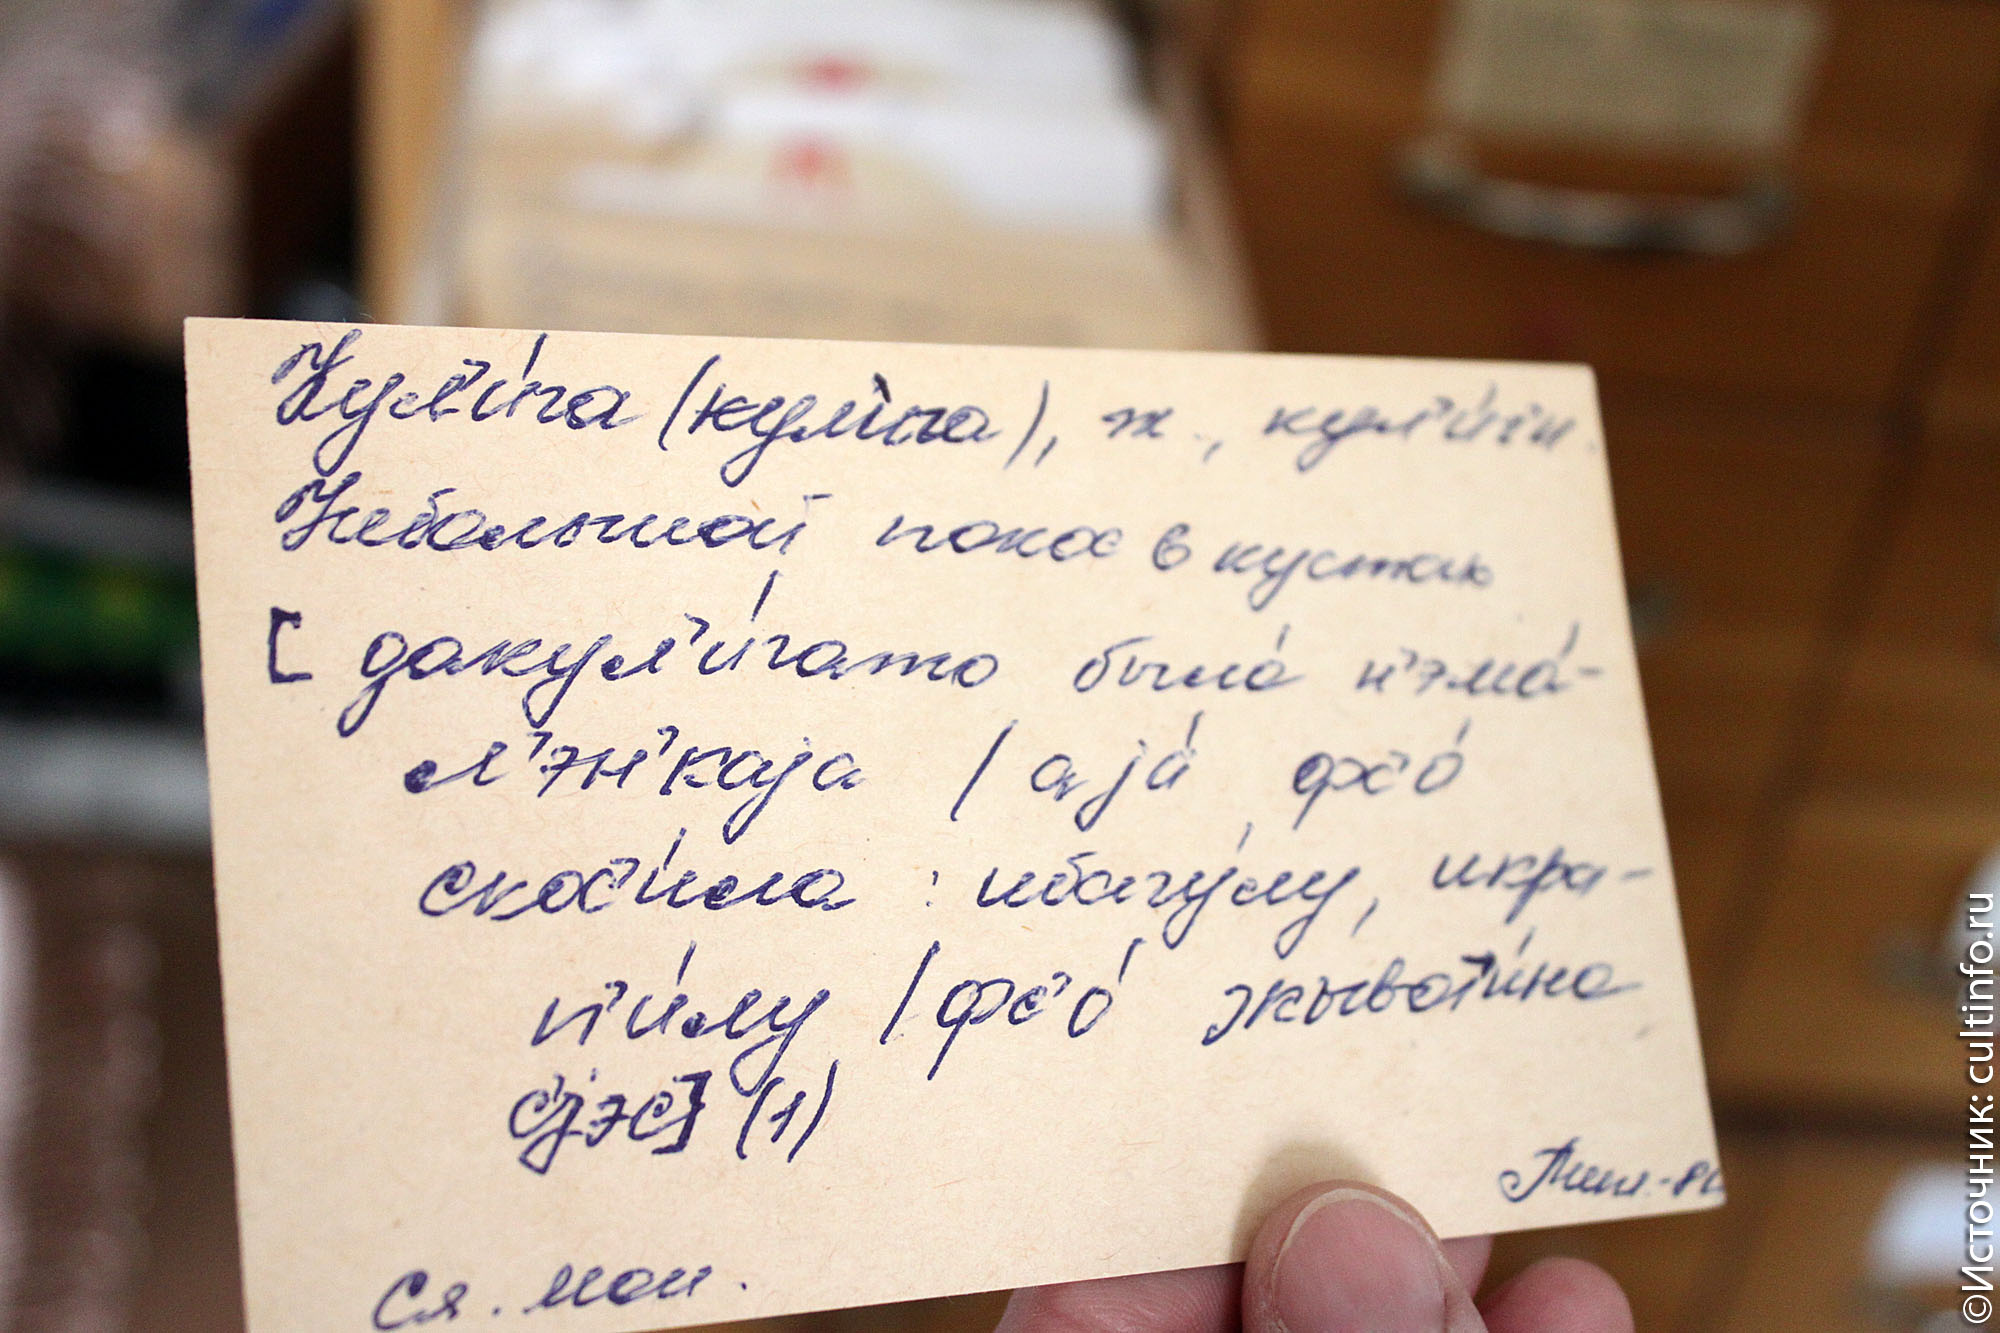 Кул'и́га (кули́га), ж., кул'и́ги.
Небольшой покос в кустах
[ дакул'и́гато была́ н'эма́-
л'эн'каја / аја́ фс'о́
скас'и́ла : ибагу́лу, икра-
п'и́лу / фс'о́ жывот'и́на
с'јэс'] (1)
Ся. мош.
©Источник: cultinfo.ru